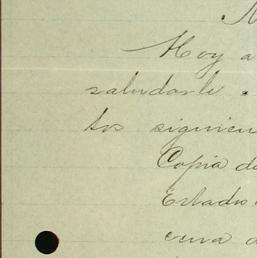 Hoy a
saludarle
tos siguien
Copia de
Estado
cuva a